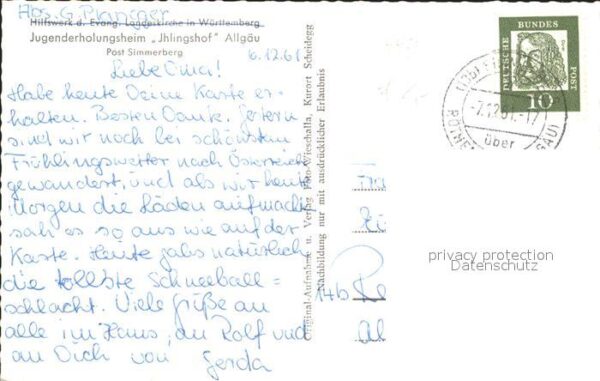 Hos. G. Pfanniger
Hilfswerk d. Evang. Landeskirche in Württemberg
Jugenderholungsheim „Jhlingshof" Allgäu
Post Simmerberg
6.12.61
Liebe Oma!
Habe heute Deine Karte er-
halten. Besten Dank. Gestern
sind wir noch bei schönstem
Frühlingswetter nach Österreich
gewandert, und als wir heute
Morgen die Läden aufmachten
sah es so aus wie auf der
Karte. Heute gabs natürlich
die tollste Schneeball=
schlacht. Viele Grüße an
alle im Haus, an Rolf und
an Dich von Gerda
Original-Aufnahme u. Verlag Foto-Wieschalla, Kurort Scheidegg
Nachbildung nur mit ausdrücklicher Erlaubnis
DEUTSCHE BUNDESPOST
10
-7.12.61.-17
über
RÖTHE
14b Re
privacy protection
Datenschutz